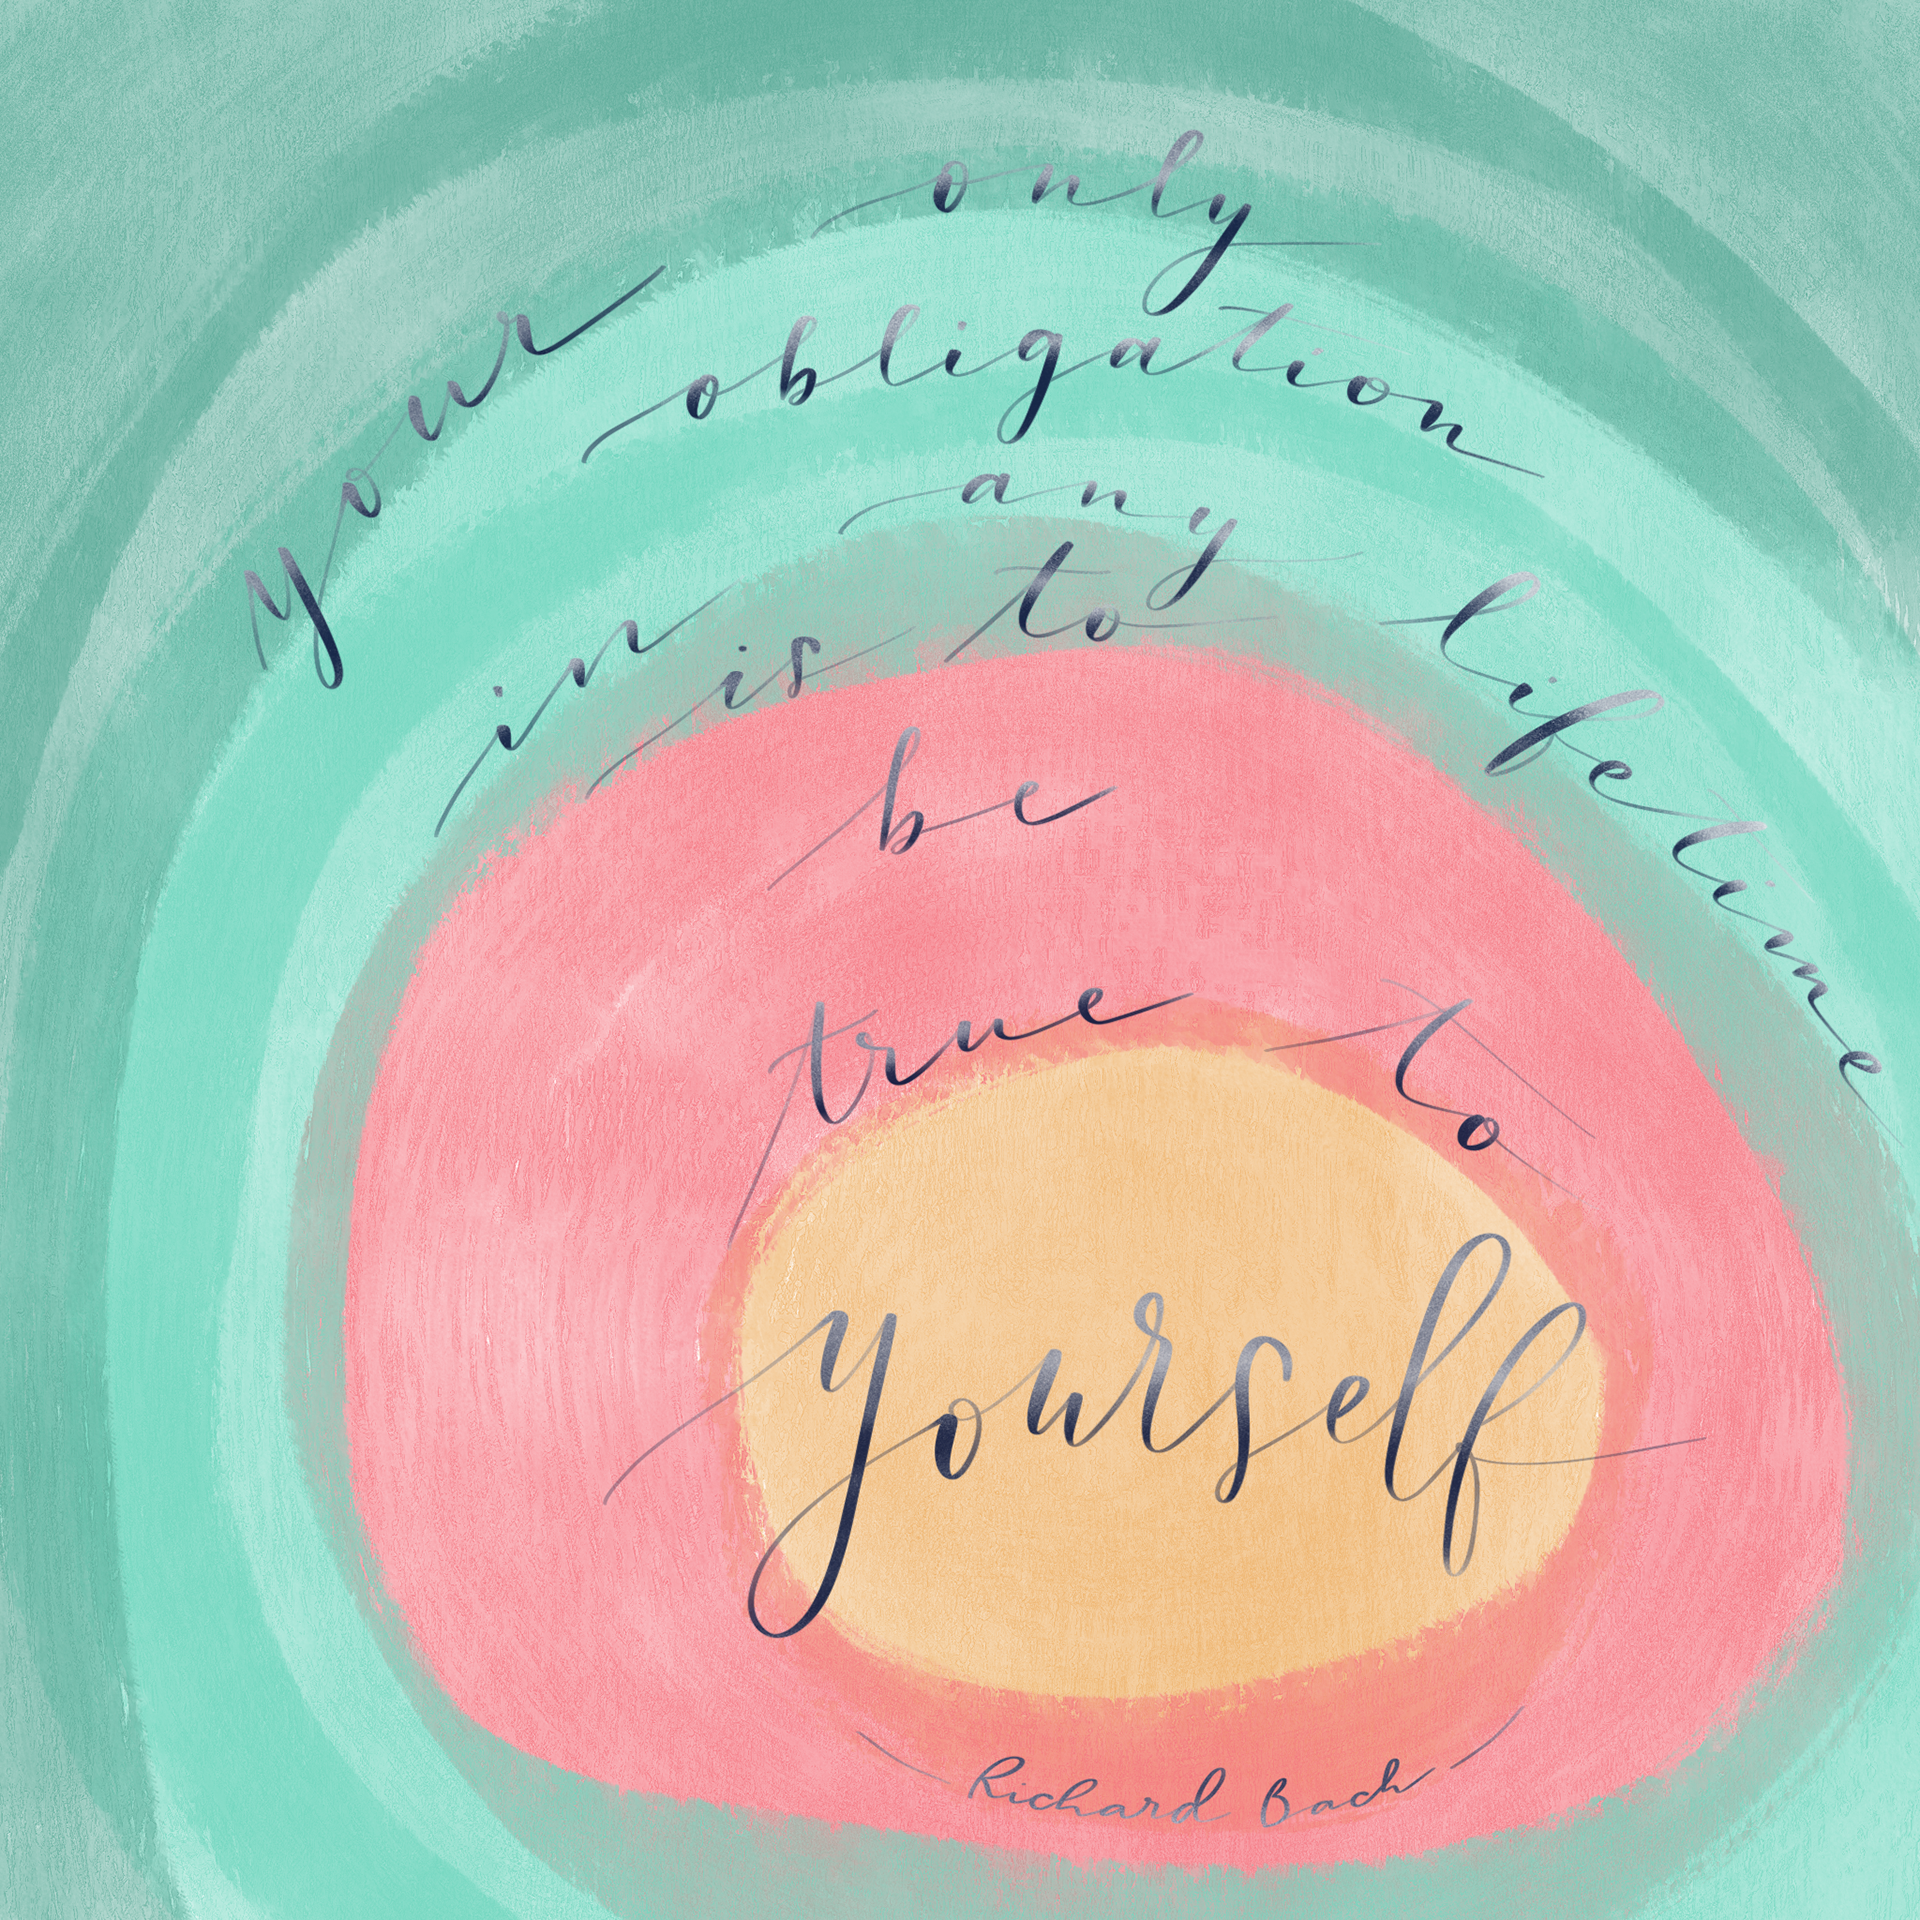 your only
obligation
in any lifetime
is to
be
true to
yourself
Richard Bach